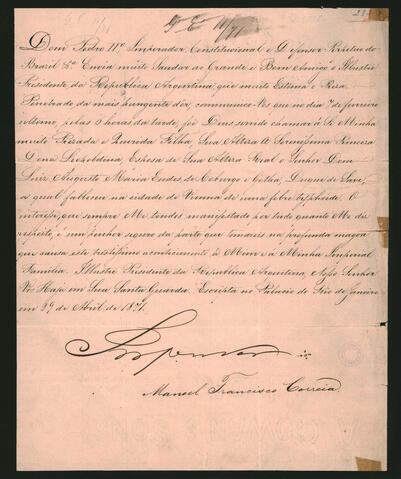 Dom Pedro IIº Imperador Constitucional e Defensor Perpetuo do
Brazil &ª Envia muito Saudar ao Grande e Bom Amigo o Illustre
Presidente da Republica Argentina, que muito Estima e Presa.
Penetrado da mais pungente dôr, communico-Vos que no dia 7 de fevereiro
ultimo, pelas 5 horas da tarde, foi Deus servido chamar á Si Minha
muito Presada e Querida Filha, Sua Alteza A Serenissima Princeza
Dona Leopoldina, Esposa de Sua Alteza Real o Senhor Dom
Luiz Augusto Maria Eudes de Coburgo e Gotha, Duque de Saxe,
a qual falleceu na cidade de Vienna de uma febre typhoide. O
interesse que sempre Me tendes manifestado por tudo quanto Me diz
respeito, é um penhor seguro da parte que tomareis na profunda magoa
que causa este tristissimo acontecimento á Mim e á Minha Imperial
Familia. Illustre Presidente da Republica Argentina, Nosso Senhor
Vos Haja em Sua Santa Guarda. Escripta no Palacio do Rio de Janeiro
em 29 de Abril de 1871.
Imperador
Manoel Francisco Correia